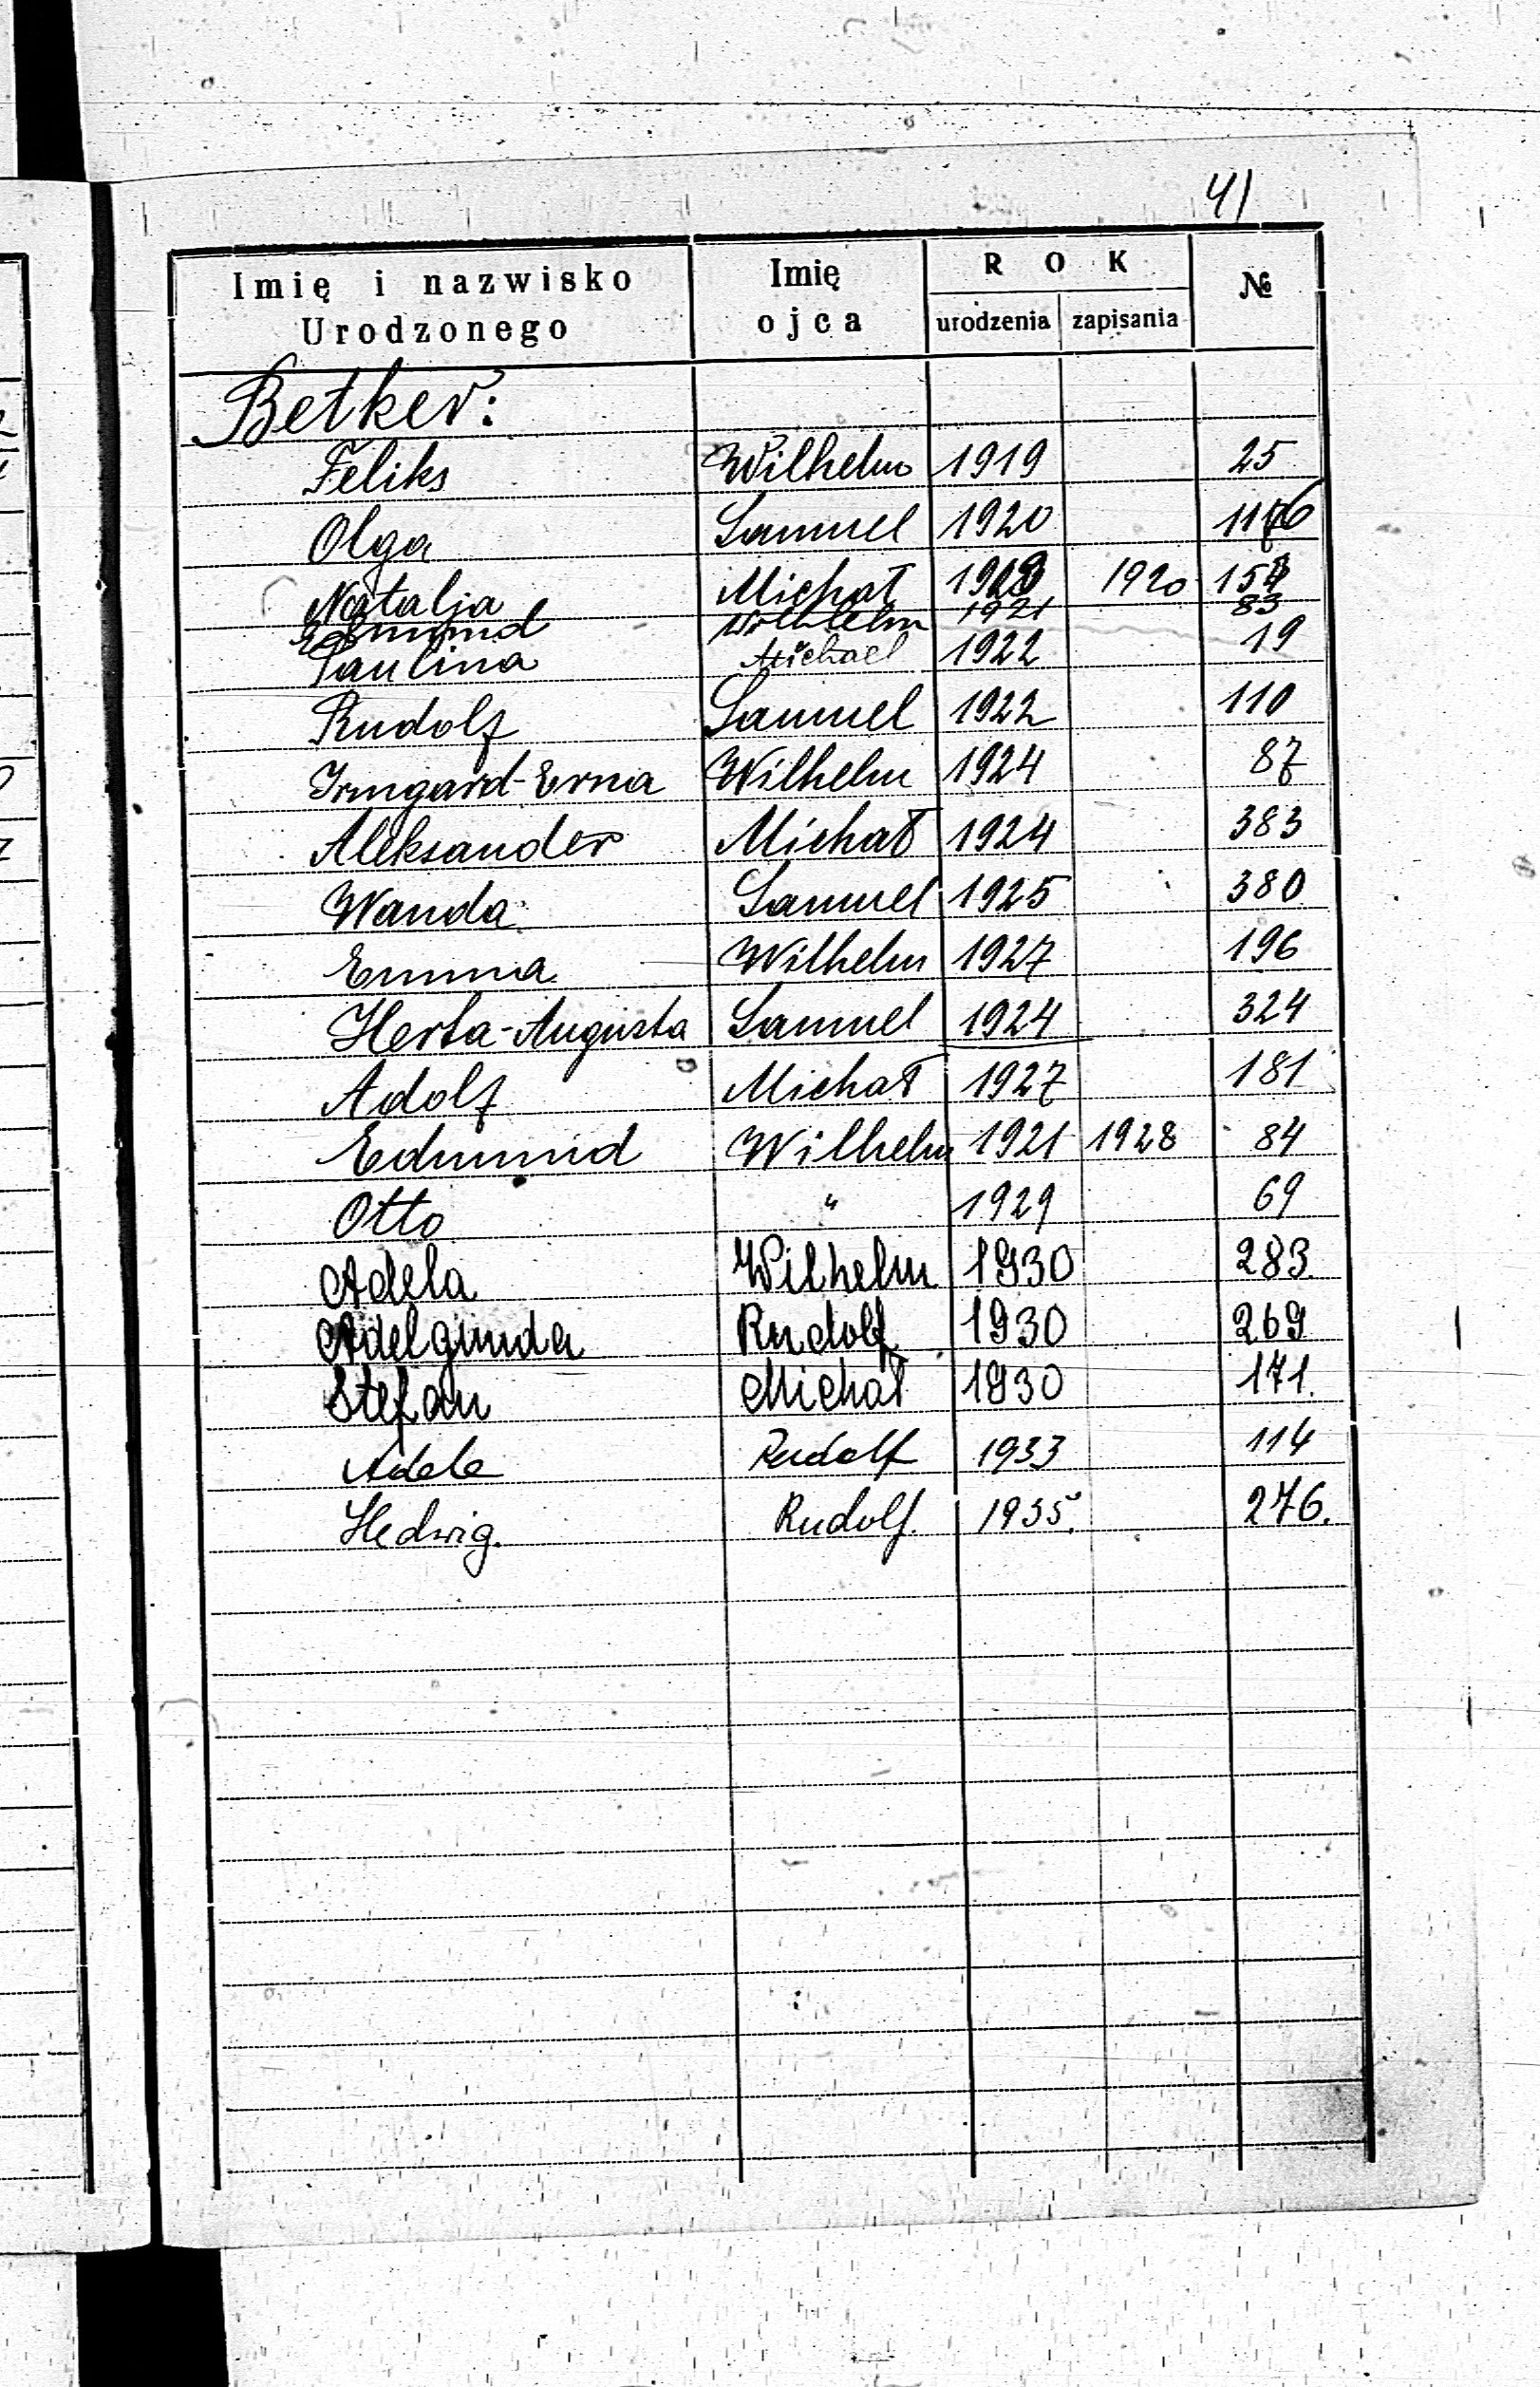 41
Imię i nazwisko Urodzonego Imię ojca ROK urodzenia zapisania №
Betker:
Feliks Wilhelm 1919 25
Olga Samuel 1920
Natalja Michał 1920
Edmund Wilhelm 1921 83
Paulina Michael 1922 19
Rudolf Samuel 1922 110
Irmgard-Erna Wilhelm 1924 87
Aleksander Michał 1924 383
Wanda Samuel 1925 380
Emma Wilhelm 1927 196
Herta-Augusta Samuel 1924 324
Adolf Michał 1927 181
Edmund Wilhelm 1921 1928 84
Otto " 1929 69
Adela Wilhelm 1930 283.
Adelgunda Rudolf 1930 269
Stefan Michał 1930 171.
Adele Rudolf 1933 114
Hedwig. Rudolf. 1935. 276.